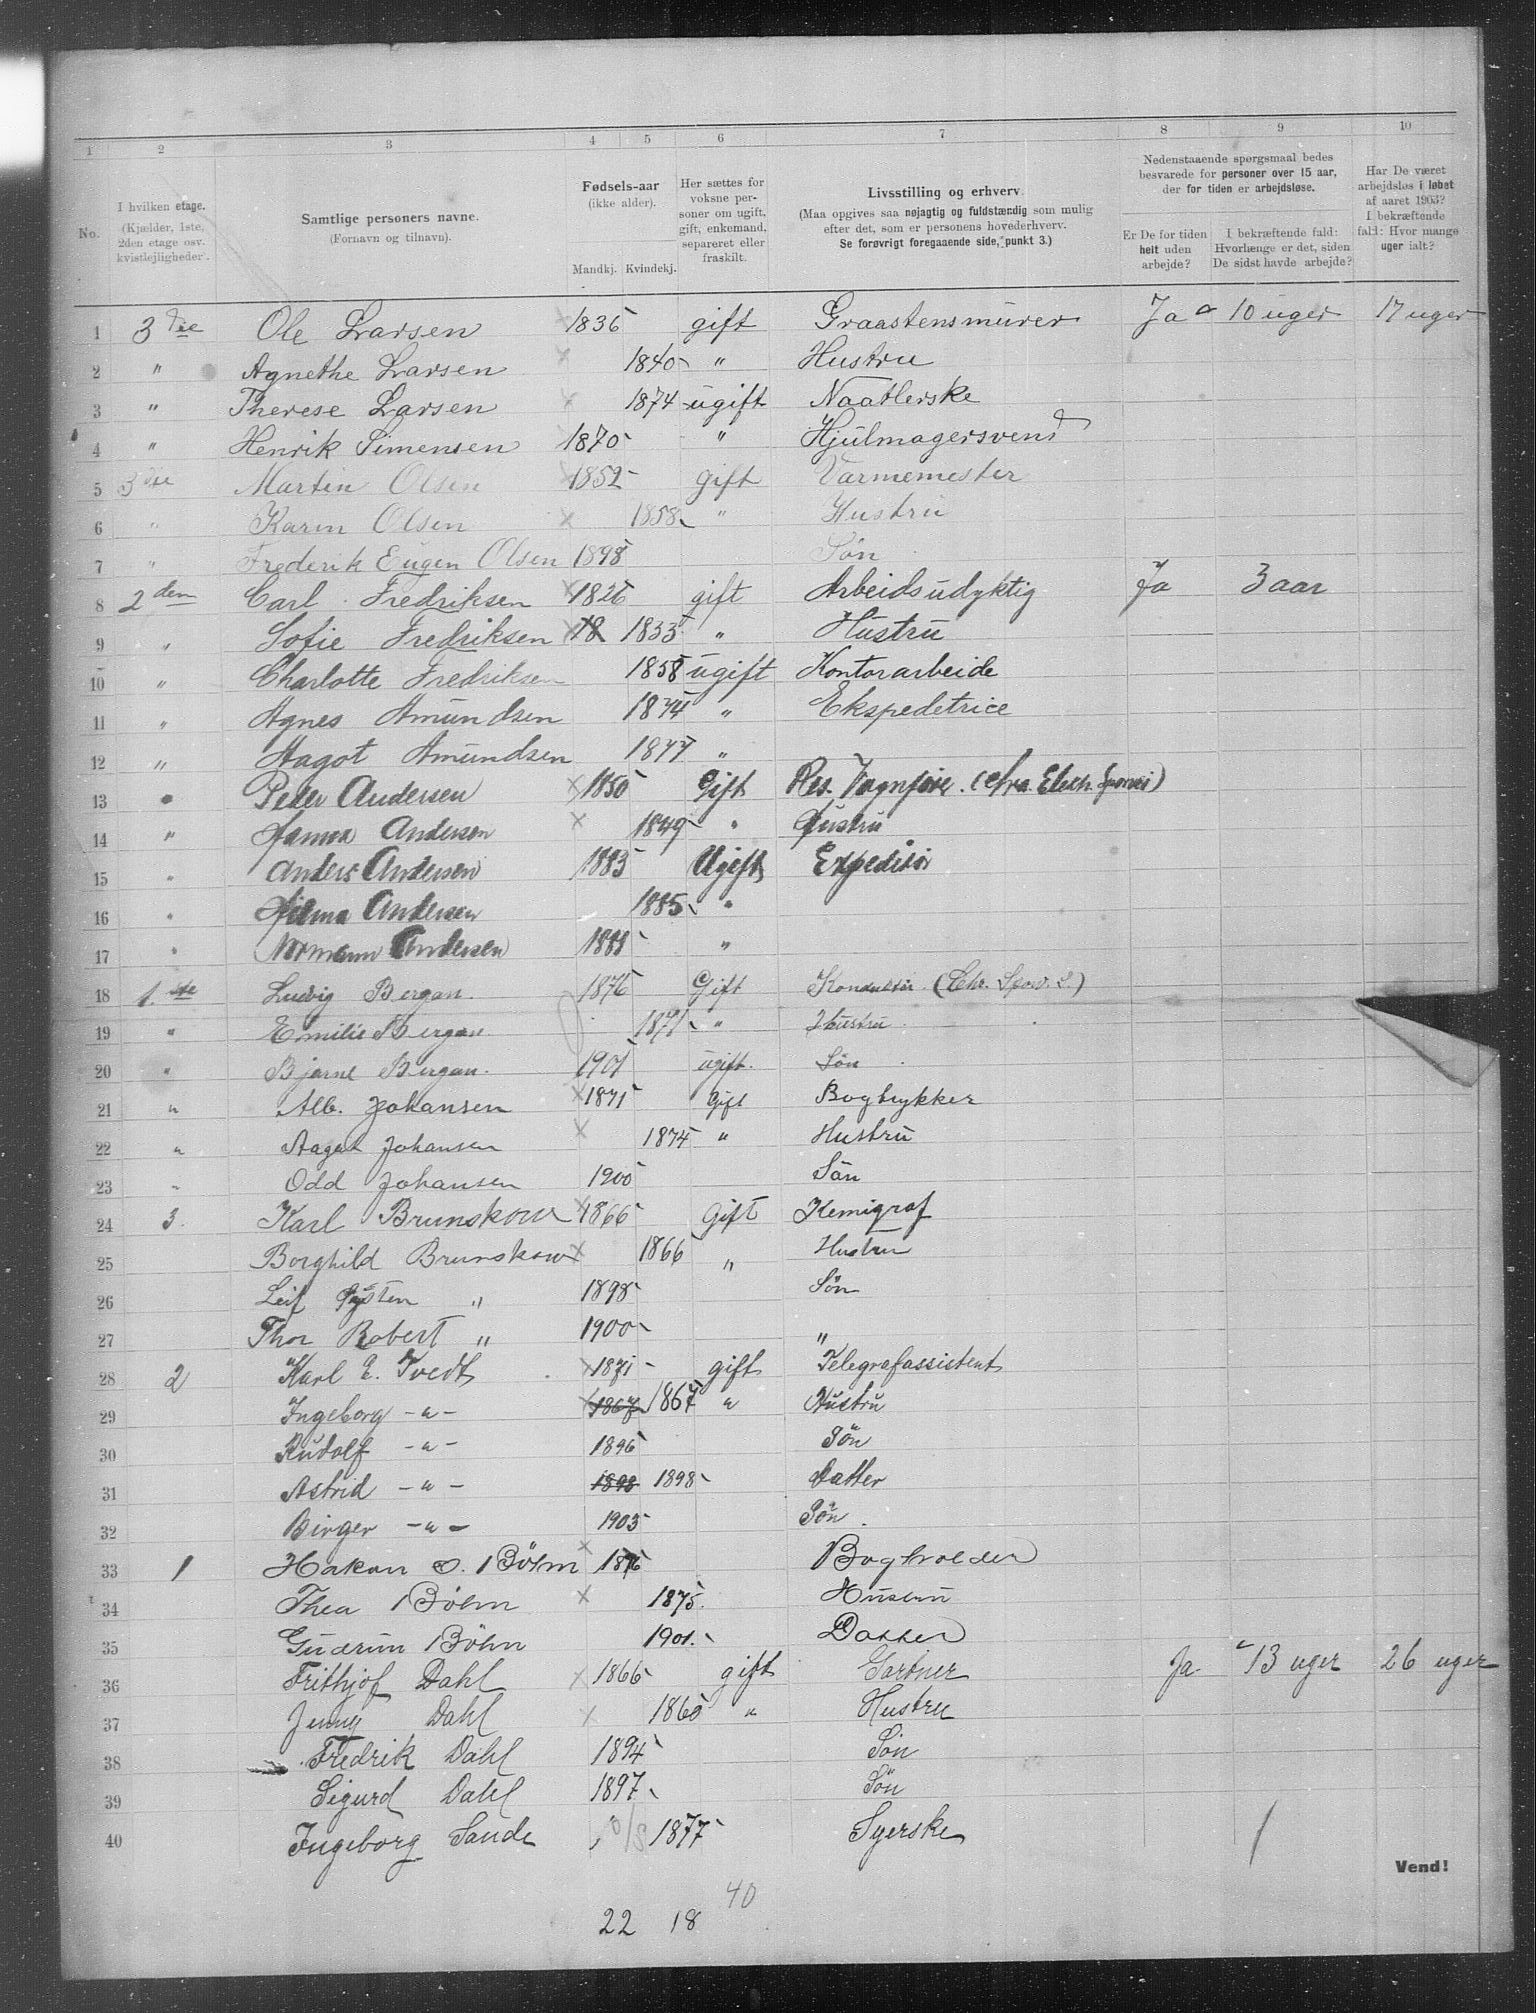 1 2 3 4 5 6 7 8 9 10
No.
I hvilken etage. (Kjælder, 1ste, 2den etage osv. kvistlejligheder.
Samtlige personers navne. (Fornavn og tilnavn).
Fødsels-aar (ikke alder). Mandkj. Kvindekj.
Her sættes for voksne personer om ugift, gift, enkemand, separeret eller fraskilt.
Livsstilling og erhverv. (Maa opgives saa nøjagtig og fuldstændig som mulig efter det, som er personens hovederhverv. Se forøvrigt foregaaende side, punkt 3.)
Nedenstaaende spørgsmaal bedes besvarede for personer over 15 aar, der for tiden er arbejdsløse.
Er De for tiden helt uden arbejde?
I bekræftende fald: Hvorlænge er det, siden De sidst havde arbejde?
Har De været arbejdsløs i løbet af aaret 1903? I bekræftende fald: Hvor mange uger ialt?
1 3die Ole Larsen 1836 gift Graastensmürer Ja 10 uger 17 uger
2 " Agnethe Larsen 1840 " Hustru
3 " Therese Larsen 1874 ugift Naatlerske
4 " Henrik Simensen 1870 " Hjulmagersvend
5 3die Martin Olsen 1852 gift Varmemester
6 " Karen Olsen 1858 " Hustru
7 " Frederik Eugen Olsen 1898 Søn
8 2den Carl Fredriksen 1826 gift Arbeidsudyktig Ja 3 aar
9 " Sofie Fredriksen 18 1833 " Hustru
10 " Charlotte Fredriksen 1858 ugift Kontorarbeide
11 " Agnes Amundsen 1874 " Ekspedetrice
12 " Hagot Amundsen 1877 "
13 " Peder Andersen 1850 Gift Res. Vognfører.
14 " Hanna Andersen 1849 " Hustru
15 " Anders Andersen 1883 Ugift Expeditør
16 " Hilma Andersen 1885 "
17 " Normann Andersen 1888 "
18 1ste Ludvig Bergan. 1876 Gift Konduktør
19 " Emilie Bergan 1871 " Hustru
20 " Bjarne Bergan. 1901 ugift. Søn
21 " Alb. Johansen 1871 Gift Bogtrykker
22 " Aagot Johansen 1874 " Hustru
23 " Odd Johansen 1900 Sön
24 3. Karl Brunskow 1866 Gift Kemigraf
25 Borghild Brunskow 1866 " Hustru
26 Leif Øysten " 1898 Sön
27 Thor Robert " 1900 "
28 2 Karl E. Tvedt 1871 gift Telegrafassistent
29 Ingeborg -"- 1867 1867 " Hustru
30 Rudolf -"- 1896 Sön
31 Astrid -"- 1898 1898 Datter
32 Birger -"- 1903 Sön
33 1 Hakon O. Böhm 1876 Bogholder
34 Thea Böhm 1875. Hustru
35 Gudrun Böhm 1901. Datter
36 Frithjof Dahl 1866 gift Gartner Ja. 13 uger 26 uger
37 Jenny Dahl 1865 " Hustru
38 Fredrik Dahl 1894 Sön
39 Sigurd Dahl 1897 Sön
40 Ingeborg Sande o/s 1877 Syerske
Vend!
40
22 18